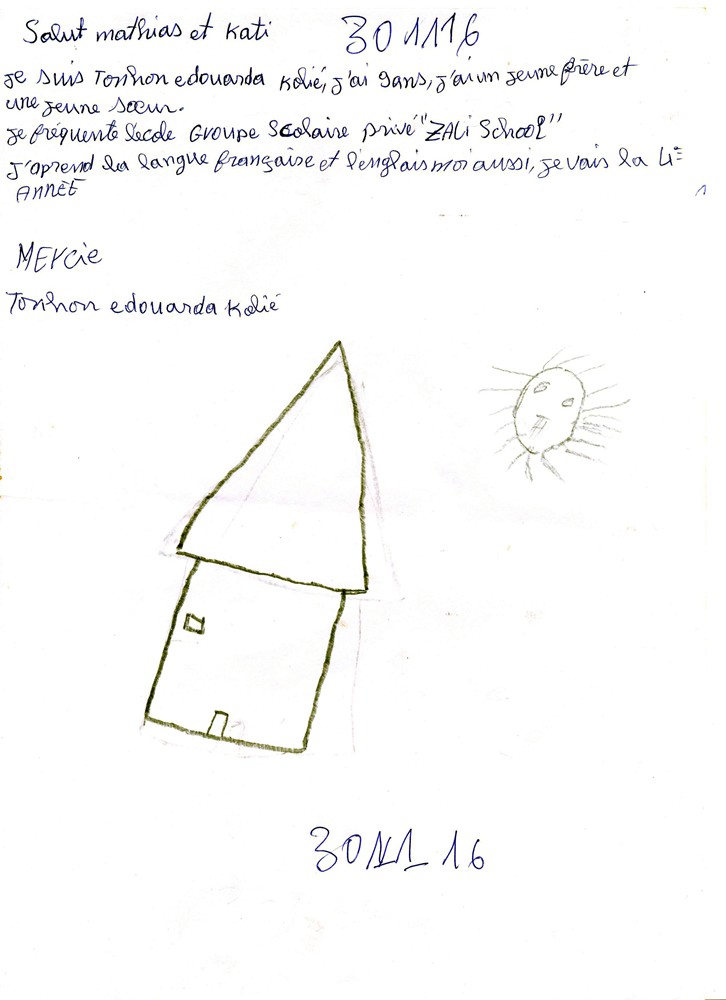 Salut mathias et Kati 301116
je suis Tonhon edouarda Kolié, j'ai 9ans, j'ai un jeune frère et
une jeune sœur.
je fréquente l'école Groupe Scolaire privé "ZALi School"
j'aprend la langue française et l'englais moi aussi, je vais la 4e
ANNÉE
Mercie
Tonhon edouarda Kolié
301116